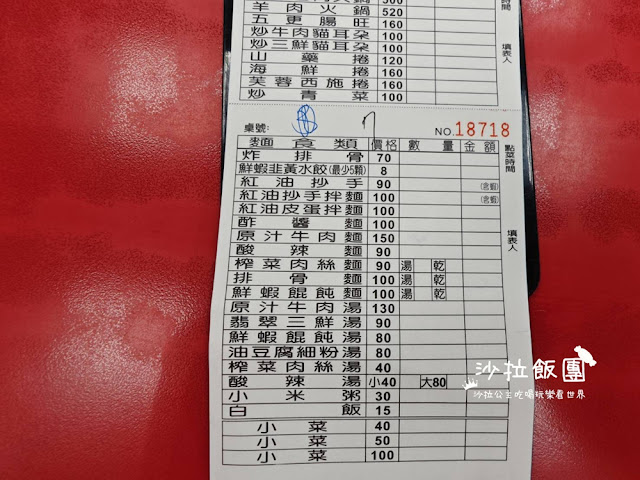 羊肉火鍋 520
五更腸旺 160
炒牛肉貓耳朶 100
炒三鮮貓耳朶 100
山藥捲 120
海鮮捲 160
芙蓉西施捲 160
炒青菜 100
填表人
桌號:
NO.18718
麵食類 價格 數量 金額
點菜時間
炸排骨 70
鮮蝦韭黃水餃(最少5顆) 8
紅油抄手 90 (含蝦)
紅油抄手拌麵 100 (含蝦)
紅油皮蛋拌麵 100
酢醬麵 100
原汁牛肉麵 150
酸辣麵 90
榨菜肉絲麵 90 湯 乾
排骨麵 100 湯 乾
鮮蝦餛飩麵 100 湯 乾
原汁牛肉湯 130
翡翠三鮮湯 90
鮮蝦餛飩湯 80
油豆腐細粉湯 80
榨菜肉絲湯 40
酸辣湯 小40 大80
小米粥 30
白飯 15
小菜 40
小菜 50
小菜 100
填表人
沙拉飯團
沙拉公主吃喝玩樂看世界